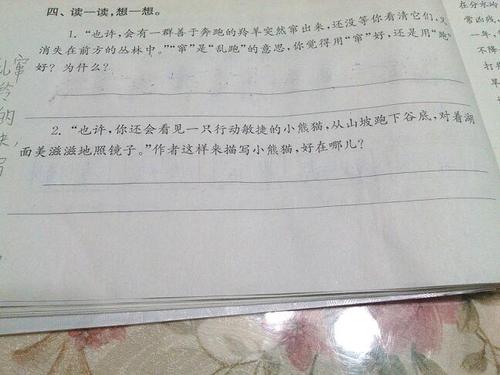 四、读一读,想一想。
1. “也许,会有一群善于奔跑的羚羊突然窜出来,还没等你看清它们,又
消失在前方的丛林中。”“窜”是“乱跑”的意思,你觉得用“窜”好,还是用“跑”
好?为什么?
2. “也许,你还会看见一只行动敏捷的小熊猫,从山坡跑下谷底,对着湖
面美滋滋地照镜子。”作者这样来描写小熊猫,好在哪儿?
窜
乱
羚
的
在分水岭
常
一年,
不得
打